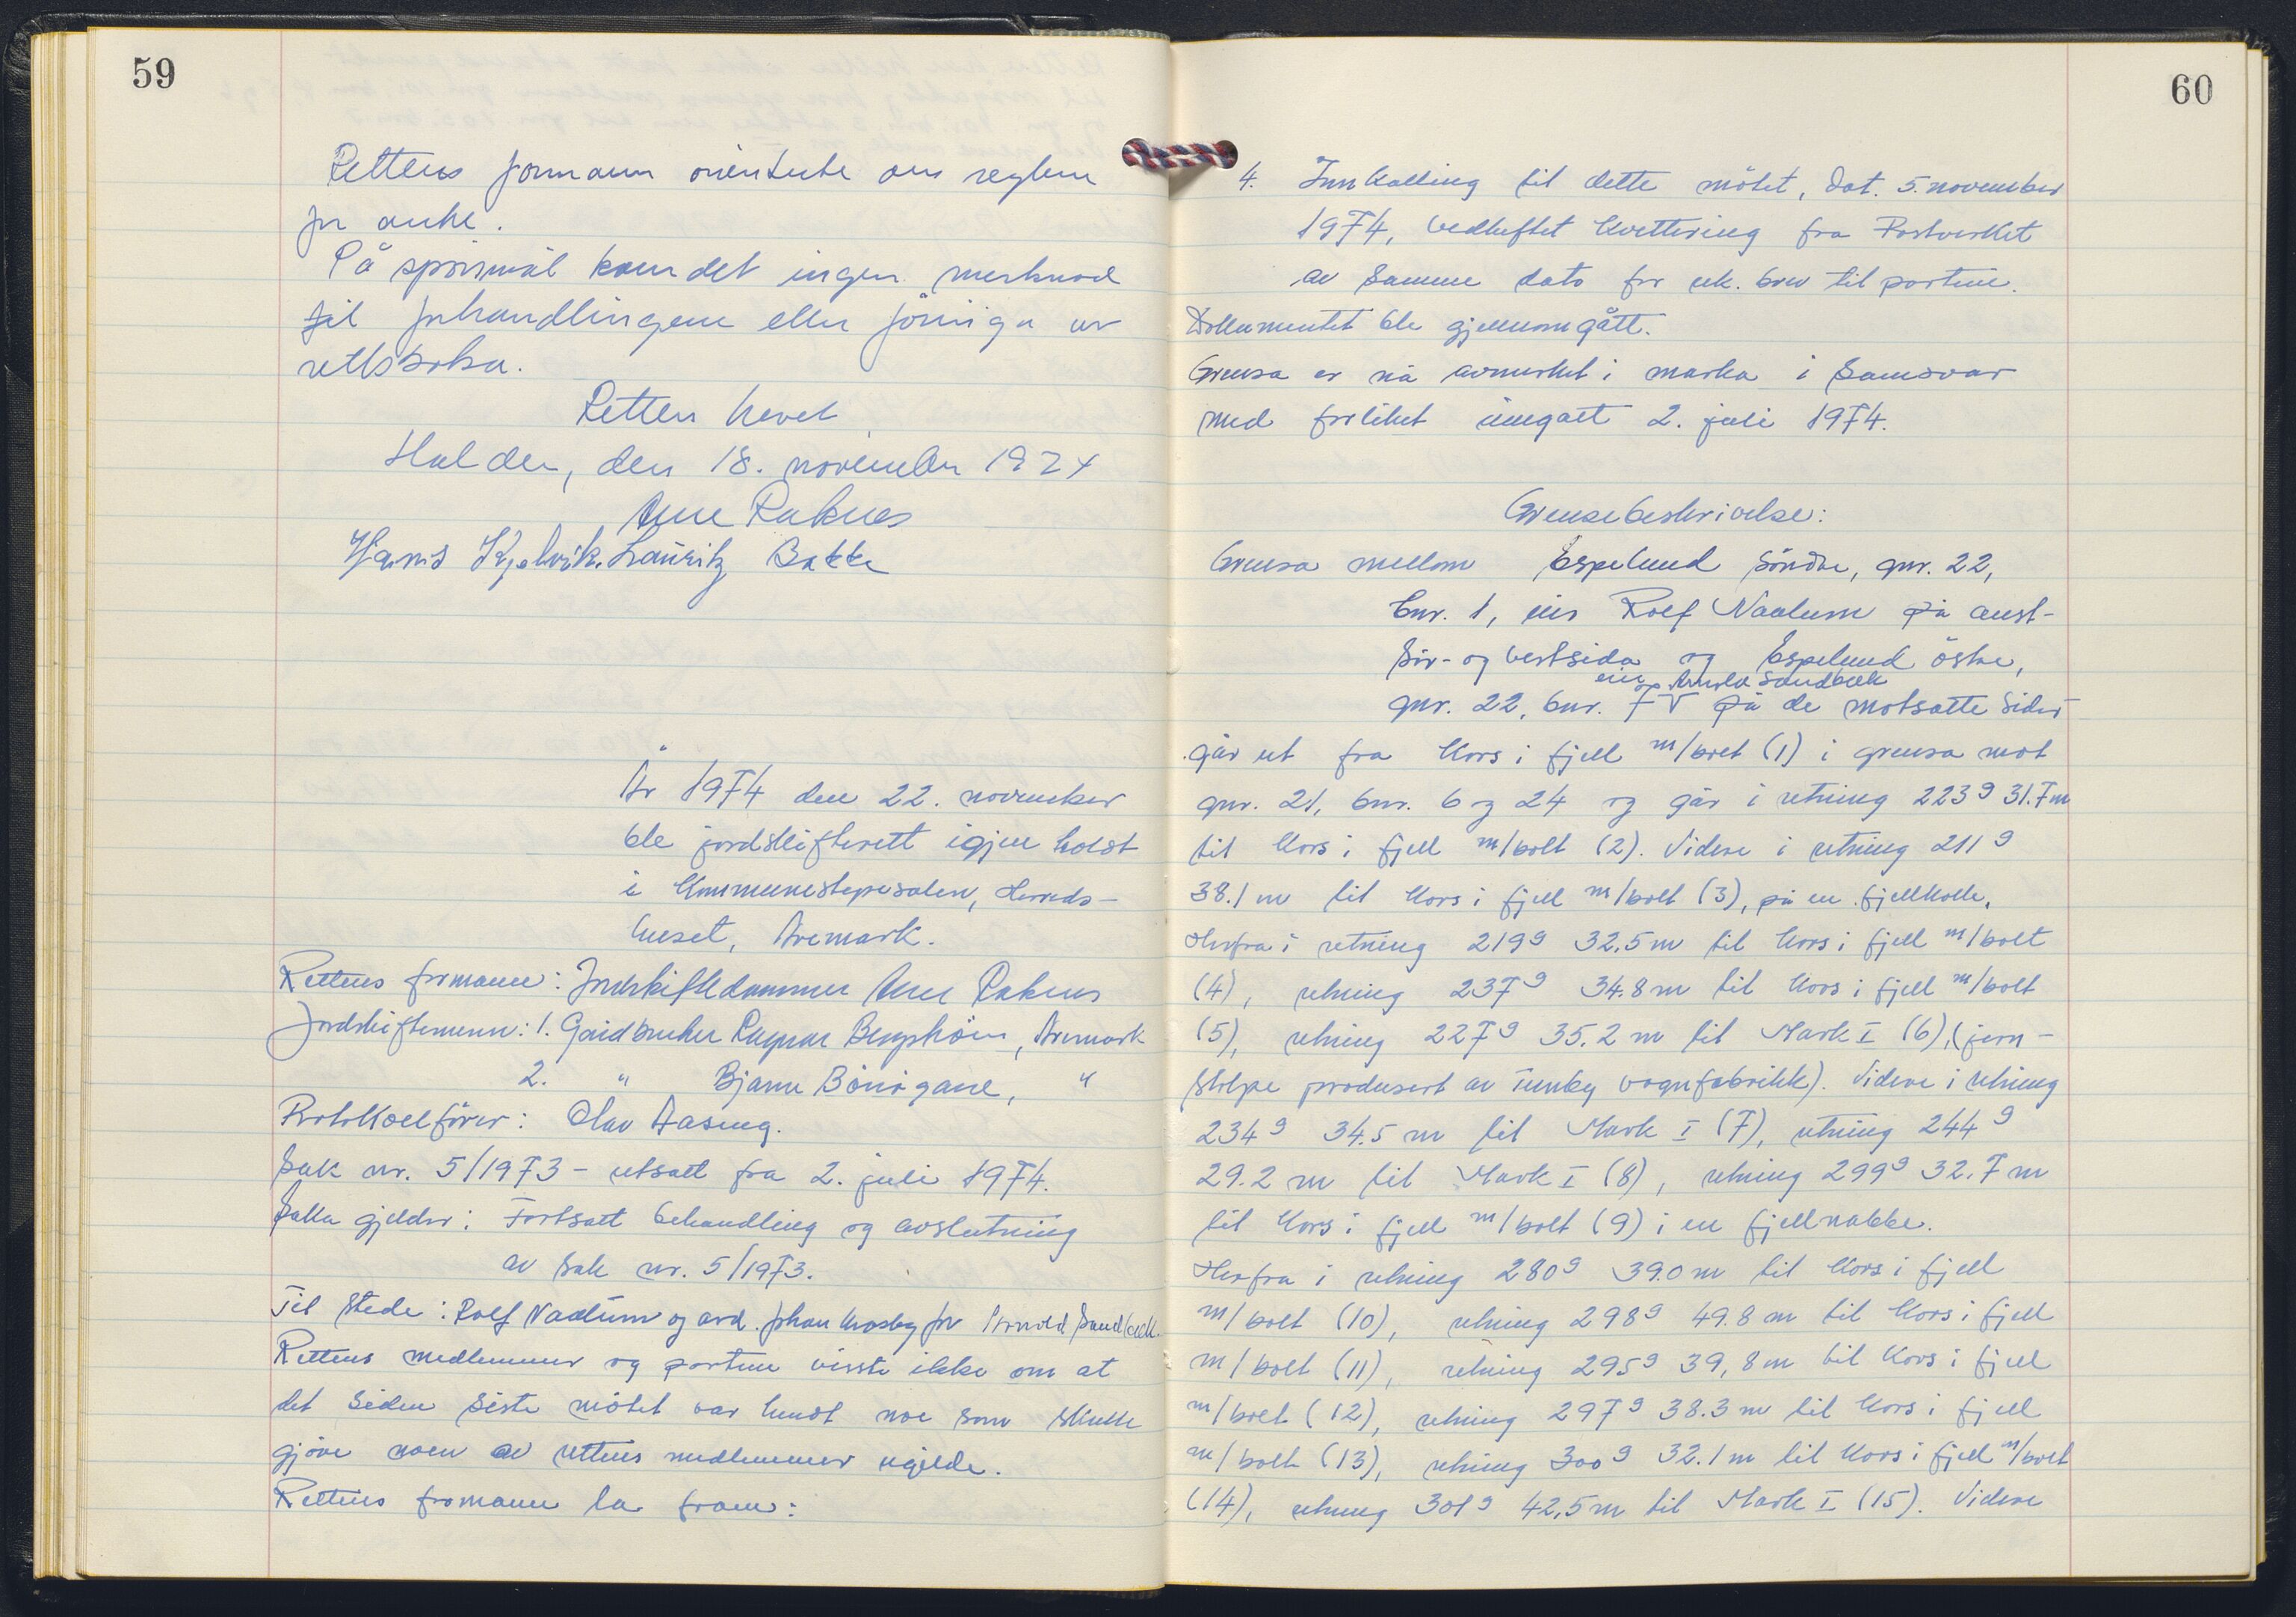 59
Rettens formann orienterte om reglene
for anke.
På spörsmål kom det ingen merknad
til forhandlingene eller föringa av
rettsboka.
Retten hevet
Halden, den 18. november 1974
Arne Raknes
Hans Kjølvik. Lauritz Bakke
År 1974 den 22. november
ble jordskifterett igjen holdt
i Kommunestyresalen, Herreds-
huset, Aremark.
Rettens formann: Jordskiftedommer Arne Raknes
Jordskiftemenn: 1. Gårdbruker Ragnar Bergström, Aremark
2. " Bjarne , "
Protokollförer: Olav Aaseng.
Sak nr. 5/1973 - utsatt fra 2. juli 1974.
Saka gjelder: Fortsatt behandling og avslutning
av sak nr. 5/1973.
Til stede: Rolf Naalum og adv. Johan Krosby for Arnold Sandbæk.
Rettens medlemmer og partene visste ikke om at
det siden siste mötet var hendt noe som skulle
gjöre noen av rettens medlemmer ugilde.
Rettens formann la fram:
60
4. Innkalling til dette mötet, dat. 5. november
1974, vedheftet kvittering fra Postverket
av samme dato for rek. brev til partene.
Dokumentet ble gjennomgått.
Grensa er nå avmerket i marka i samsvar
med forliket inngått 2. juli 1974.
Grensebeskrivelse:
Grensa mellom Espelund söndre, gnr. 22,
bnr. 1, eier Rolf Naalum på aust-
sör- og vestsida og Espelund östre,
eier Arnold Sandbæk
gnr. 22, bnr. 7 V på de motsatte sider
går ut fra kors i fjell m/bolt (1) i grensa mot
gnr. 21, bnr. 6 og 24 og går i retning 223g 31.7m
til kors i fjell m/bolt (2). Videre i retning 211g
38.1 m til kors i fjell m/bolt (3), på en fjellkolle.
Herfra i retning 219g 32.5m til kors i fjell m/bolt
(4), retning 237g 34.8m til kors i fjell m/bolt
(5), retning 227g 35.2 m til Mark I (6), (jern-
stolpe produsert av Tunby vognfabrikk). Videre i retning
234g 34.5 m til Mark I (7), retning 244g
29.2 m til Mark I (8), retning 299g 32.7 m
til kors i fjell m/bolt (9) i en fjellnabbe.
Herfra i retning 280g 39.0m til kors i fjell
m/bolt (10), retning 298g 49.8 m til kors i fjell
m/bolt (11), retning 295g 39,8m til kors i fjell
m/bolt (12), retning 297g 38.3 m til kors i fjell
m/bolt (13), retning 300g 32.1 m til kors i fjell m/bolt
(14), retning 301g 42,5m til Mark I (15). Videre